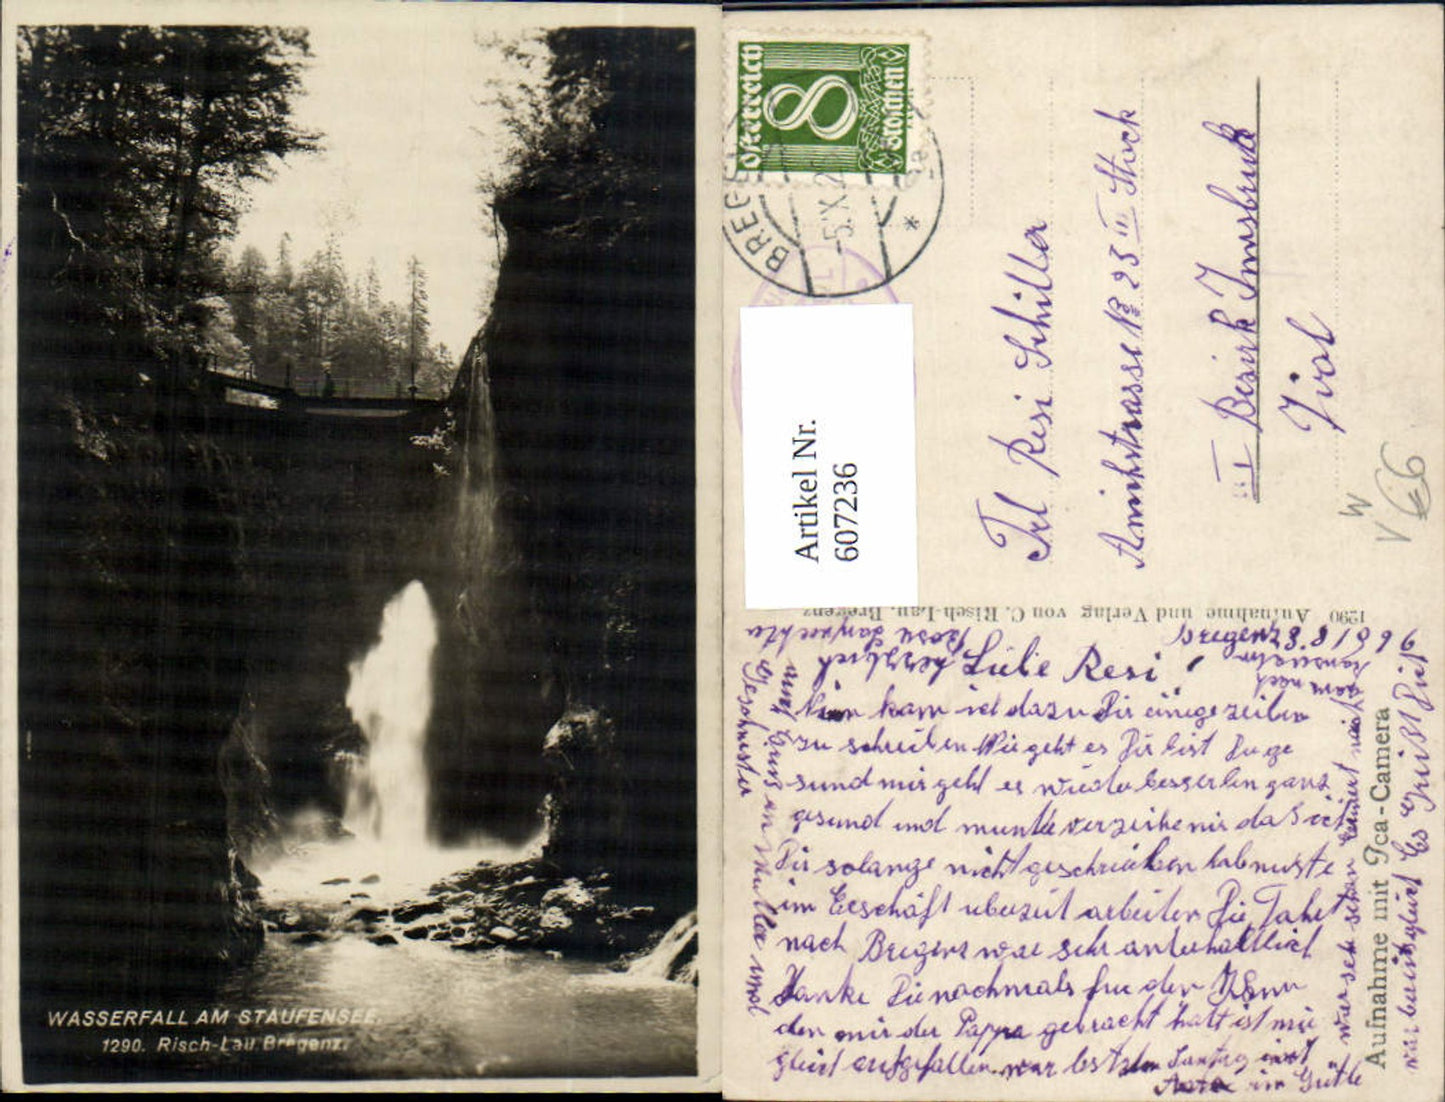 WASSERFALL AM STAUFENSEE.
1290. Risch-Lau. Bregenz.
Österreich
8
Groschen
BREGENZ
-5.X.2
*
Artikel Nr.
607236
Frl Resi Schiller
Amichstrasse № 23 III Stock
III Bezirk Innsbruck
Tirol
W
V 66
1290 Aufnahme und Verlag von C. Risch-Lau, Bregenz
Aufnahme mit Ica-Camera
Bregenz
Liebe Resi
kam ich dazu Dir einige zeilen
zu schreiben Wie geht es Dir bist Du ge
sund mir geht es wieder besser bin ganz
gesund und munter verzeihe mir das ich
Dir solange nicht geschrieben hab muste
im Geschäft uberzeit arbeiten Die Fahrt
nach Bregenz war sehr unterhaltlich
Danke Dir nochmals fur den
den mir der Pappa gebracht hatt ist mir
gleich aufgefallen war letzten Sontag
im Gütle
war sehr schön
Es Grüßt Dich
und Gruss an Mutter und
Geschwister